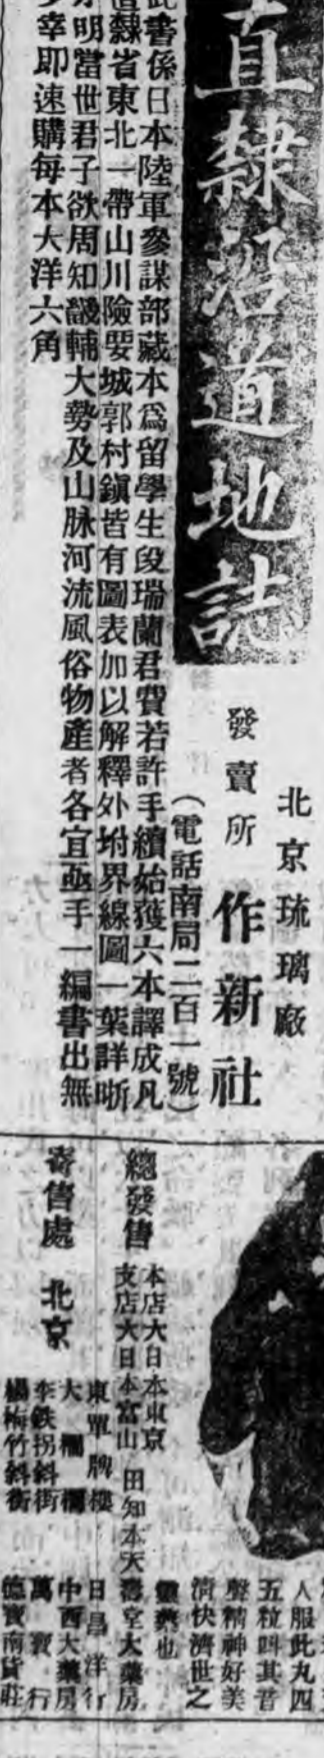 直隸沿道地誌
北京琉璃廠
發賣所 作新社
（電話南局二百一號）
此書係日本陸軍參謀部藏本爲留學生段瑞蘭君費若許手續始獲六本譯成凡
直隸省東北一帶山川險要城郭村鎭皆有圖表加以解釋外坿界線圖一葉詳晰
明當世君子欲周知畿輔大勢及山脉河流風俗物產者各宜亟手一編書出無
幸即速購每本大洋六角
人服此丸四
五粒叫其音
聲精神好美
清快濟世之
靈藥也
總發售
本店大日本東京
支店大日本富山 田知本天壽堂大藥房
寄售處 北京
東單牌樓 日昌洋行
大柵欄 中西大藥房
李鉄拐斜街 萬寶行
楊梅竹斜街 德寶南貨莊